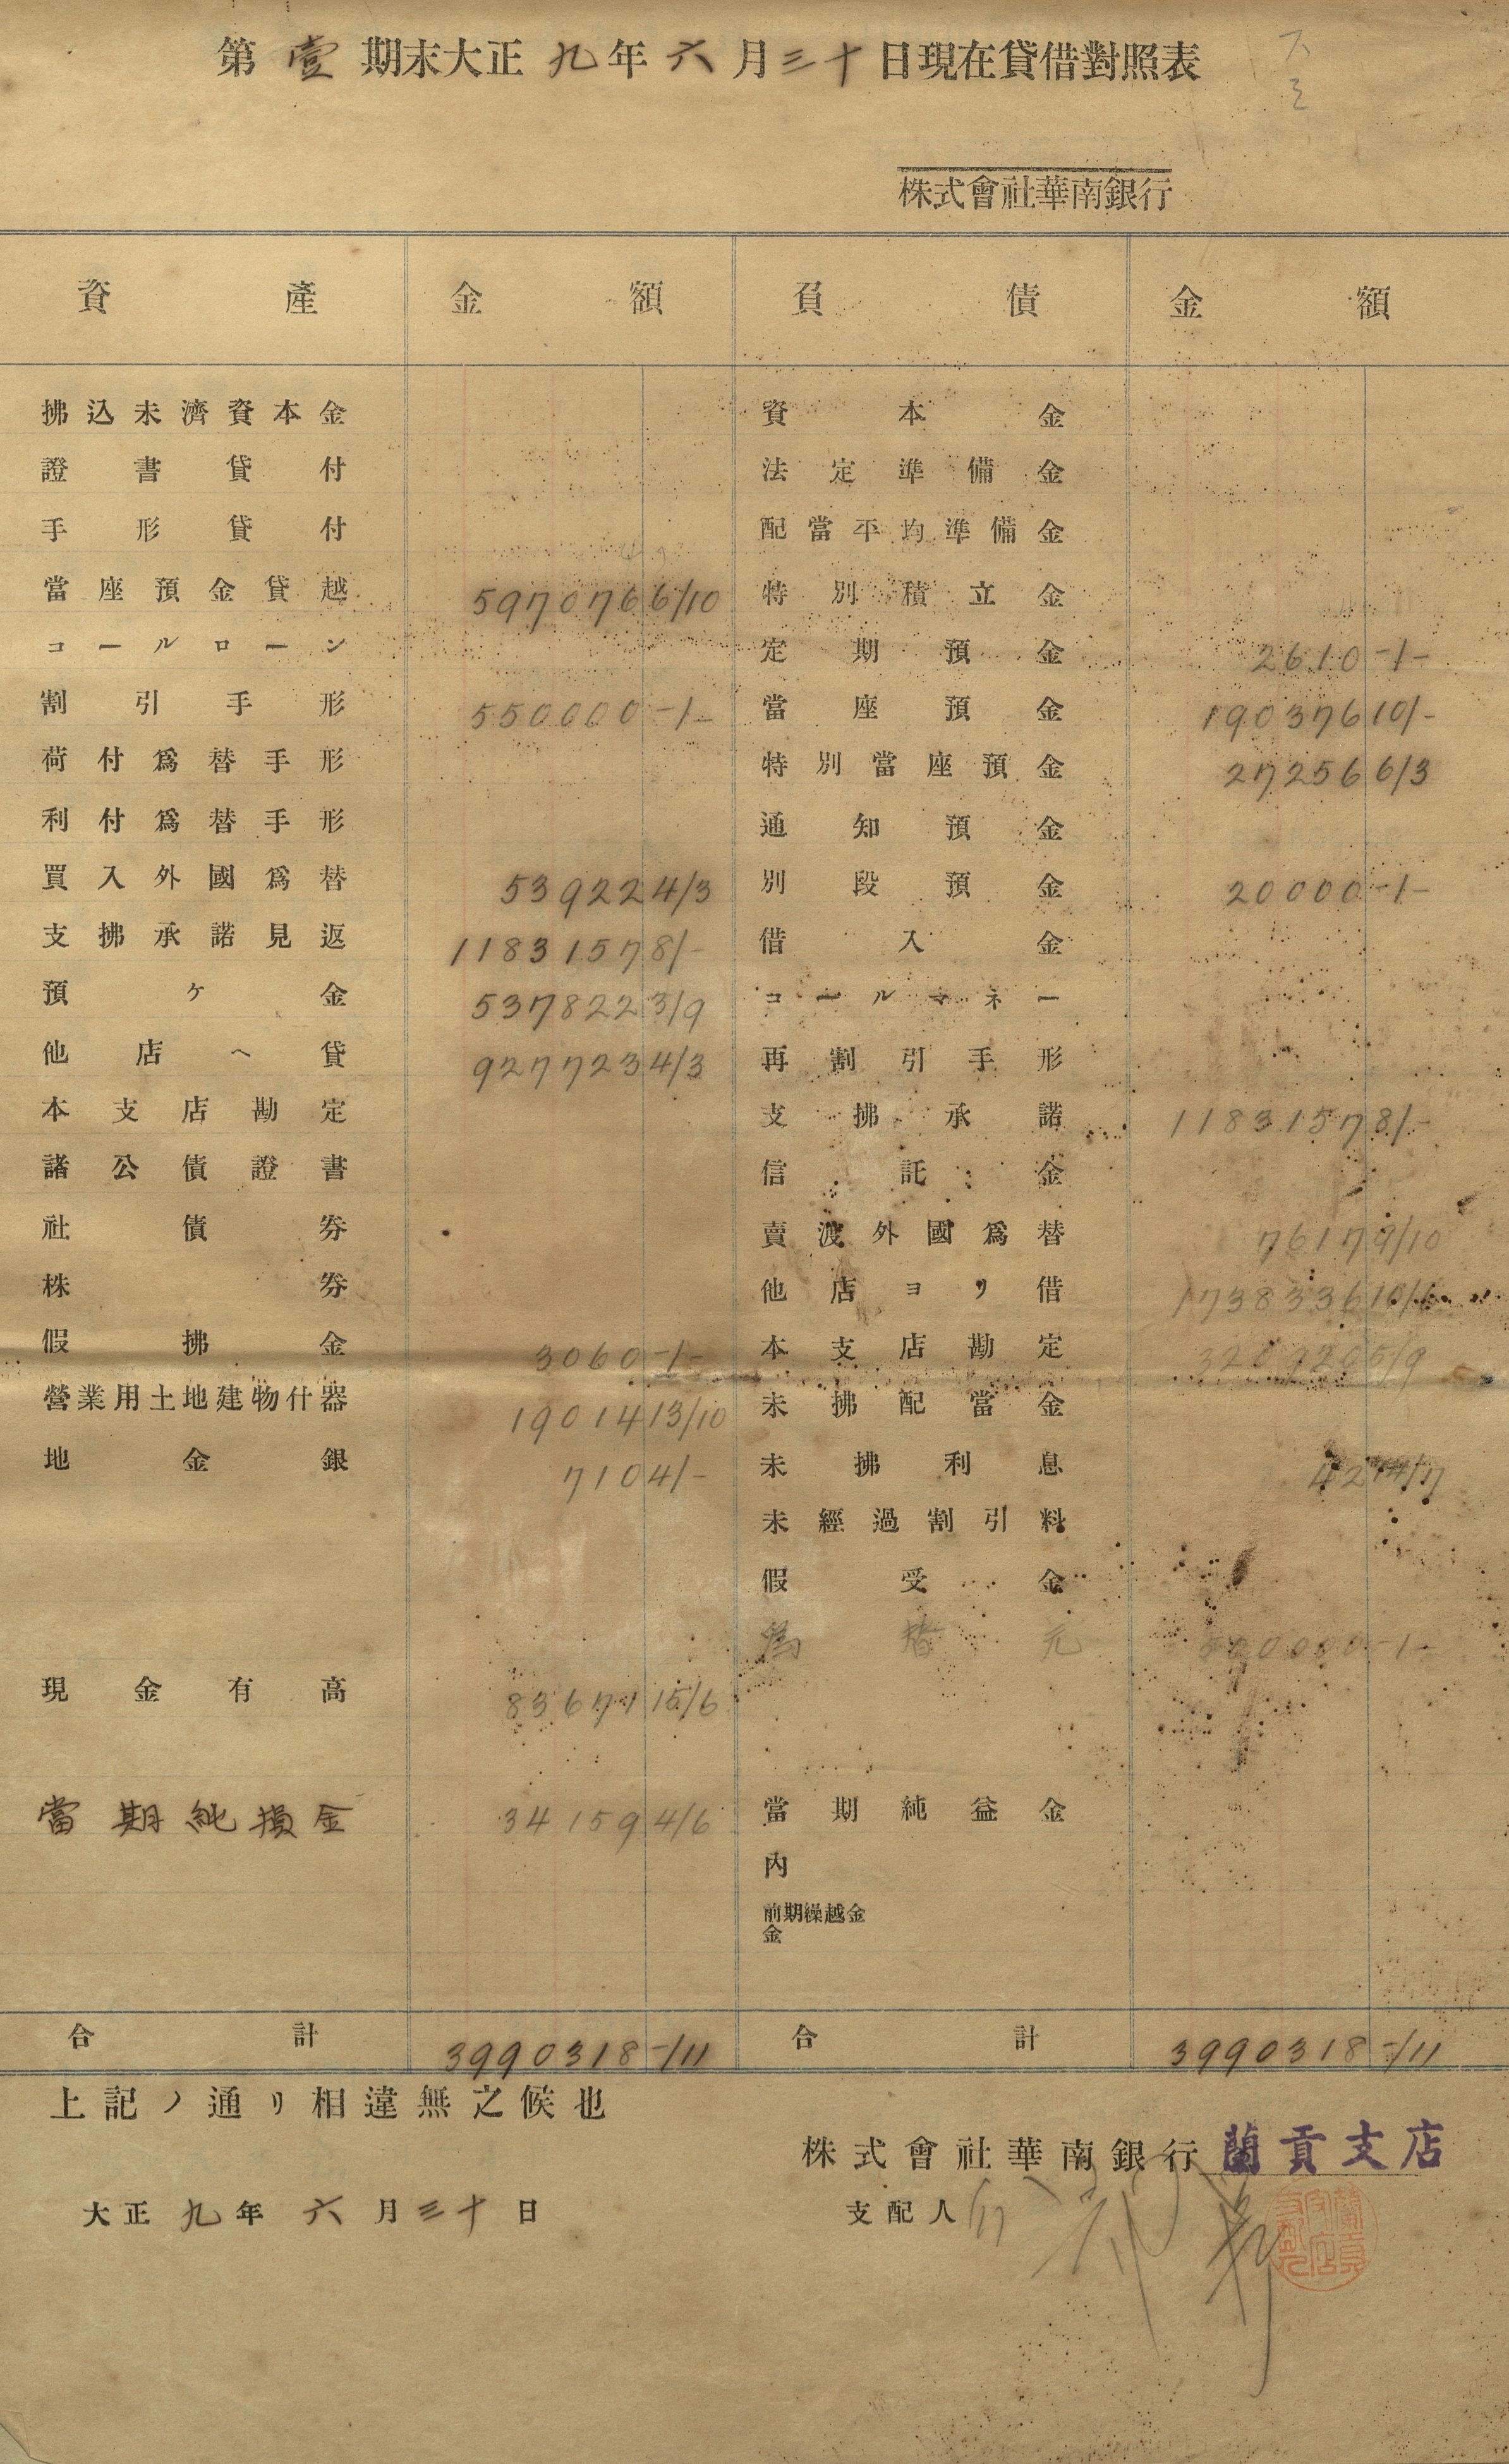 第壹期末大正九年六月三十日現在貸借對照表
株式會社華南銀行
資產 金額 負債 金額
拂込未濟資本金 資本金
證書貸付 法定準備金
手形貸付 配當平均準備金
當座預金貸越 597076 6/10 特別積立金
コールローン 定期預金 2610 -/-
割引手形 550000 -/- 當座預金 190376 10/-
荷付爲替手形 特別當座預金 27256 6/3
利付爲替手形 通知預金
買入外國爲替 53922 4/3 別段預金 20000 -/-
支拂承諾見返 1183157 8/- 借入金
預ケ金 537822 3/9 コールマネー
他店ヘ貸 927723 4/3 再割引手形
本支店勘定 支拂承諾 1183157 8/-
諸公債證書 信託金
社債券 賣渡外國爲替 7617 9/10
株券 他店ヨリ借 1738336 10/6
假拂金 3060 -/- 本支店勘定 5/9
營業用土地建物什器 19014 13/10 未拂配當金
地金銀 710 4/- 未拂利息
未經過割引料
假受金
爲替元 500000 -/-
現金有高 83671 15/6
當期純損金 34159 4/6 當期純益金
內
前期繰越金
金
合計 3990318 -/11 合計 3990318 -/11
上記ノ通リ相違無之候也
株式會社華南銀行蘭貢支店
大正九年六月三十日 支配人